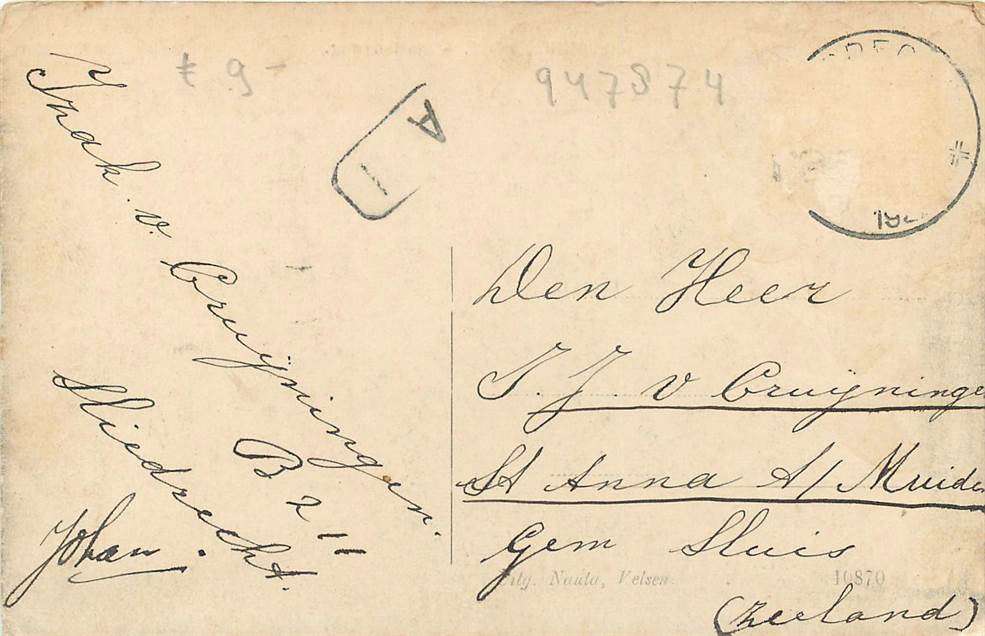 ₤ 9-
947874
A
1
192
Izak. v. Cruijningen.
B 211
Sliedrecht.
Johan.
Den Heer
I. J. v Cruijningen
St Anna A/ Muiden
Gem Sluis
(Zeeland)
Uitg. Nauta, Velsen.
10870